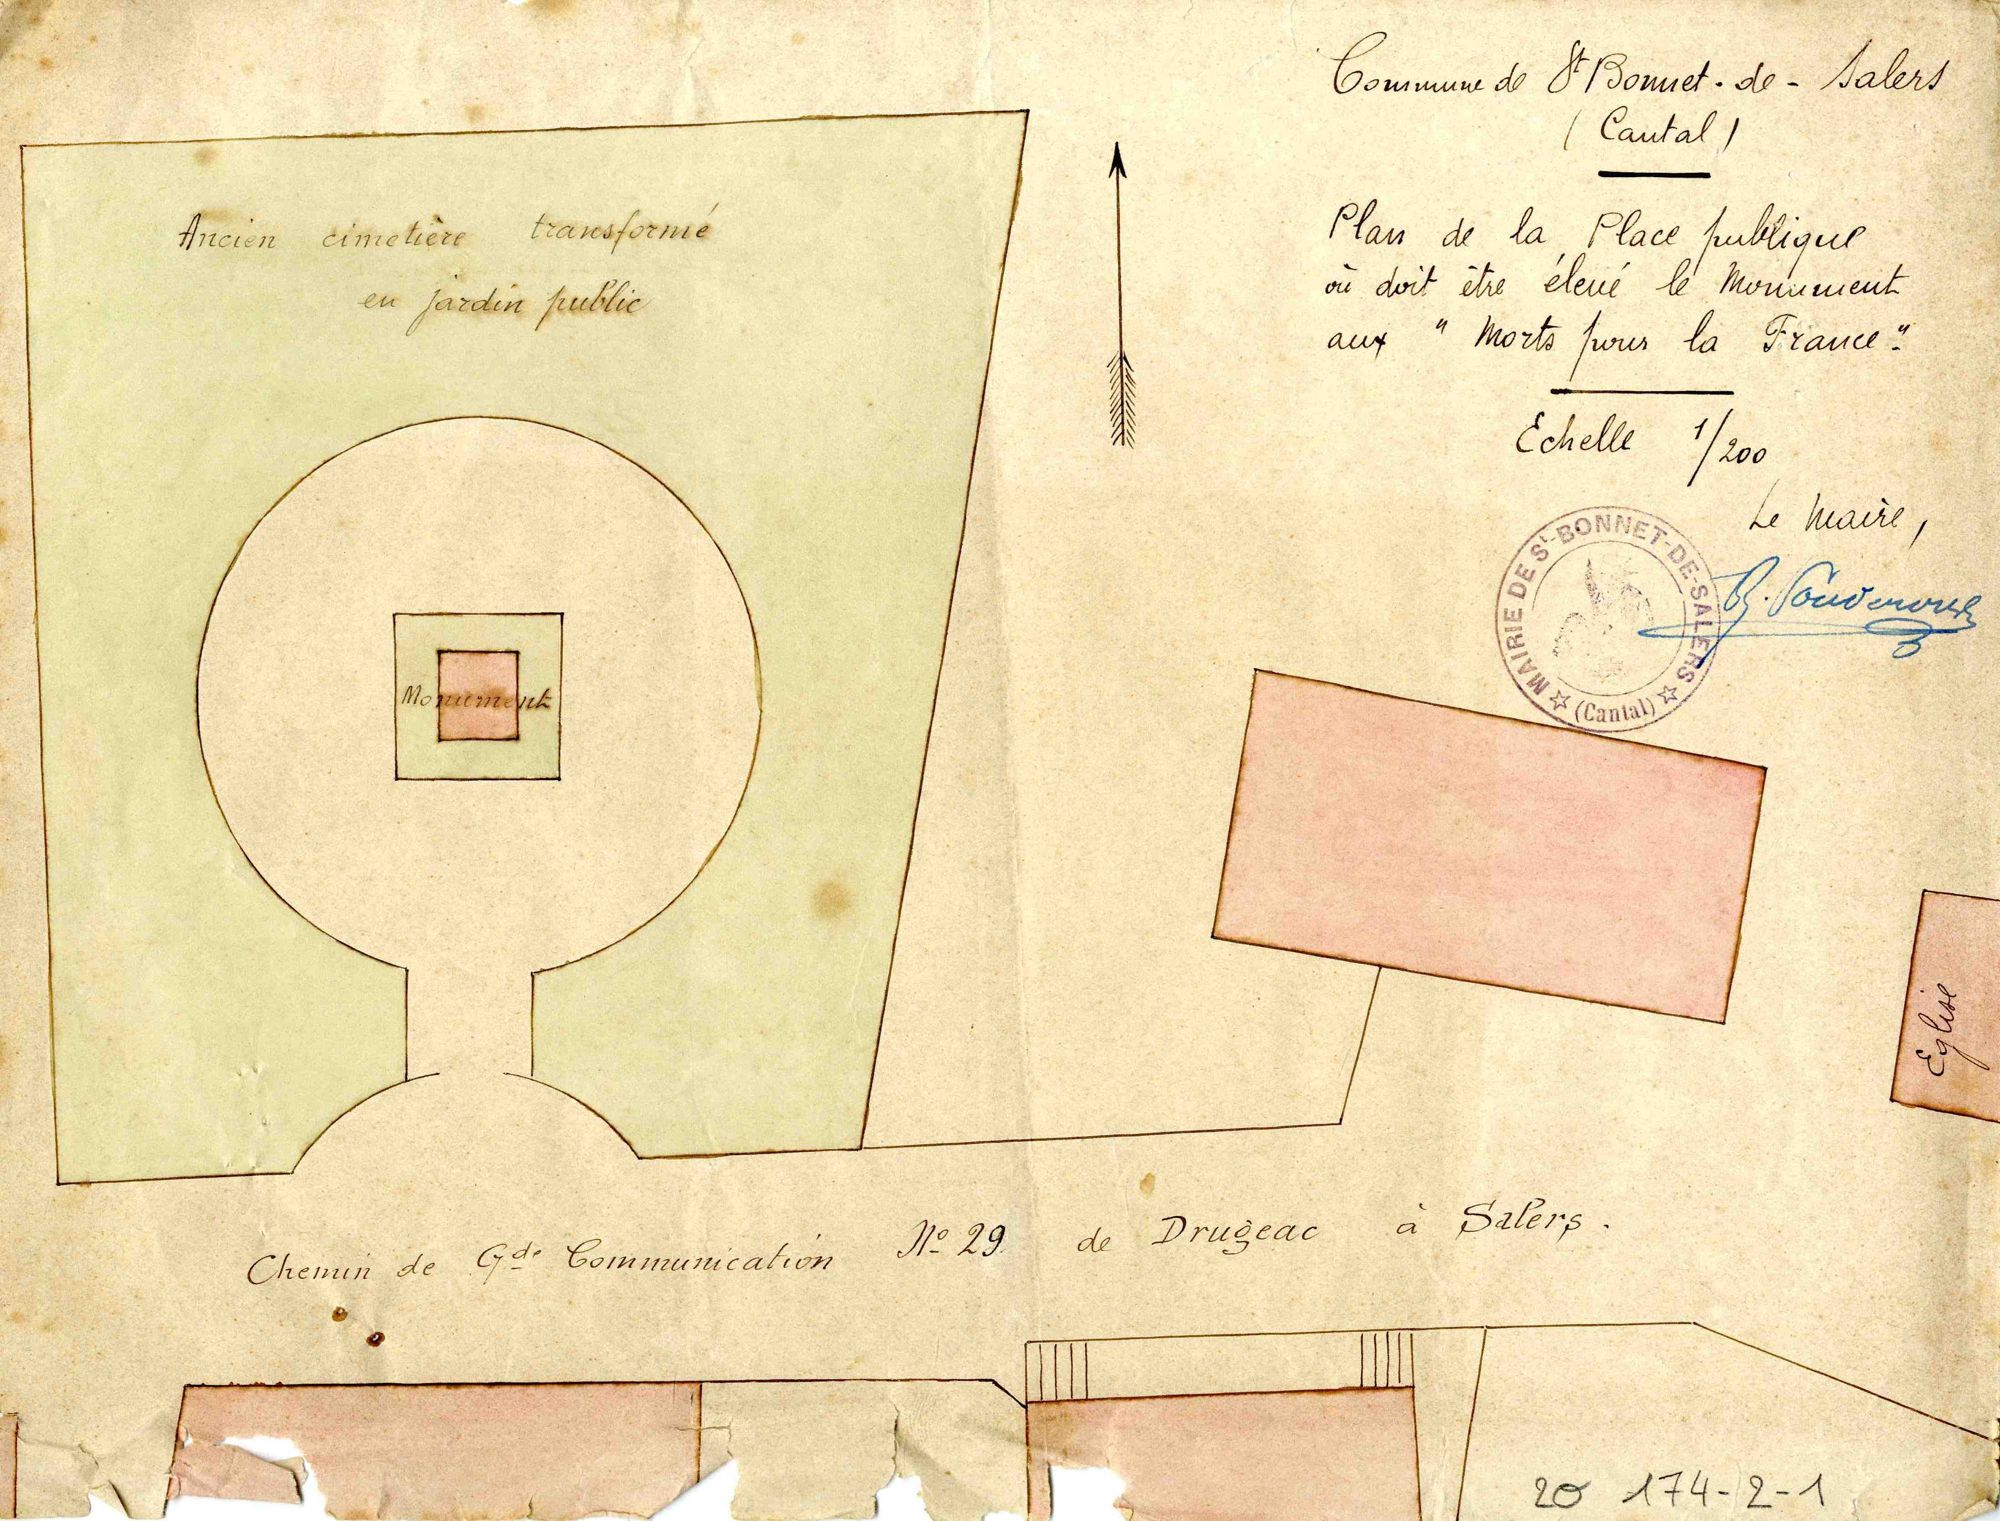 Commune de St Bonnet-de-Salers
(Cantal)
Plan de la Place publique
où doit être élevé le Monument
aux "Morts pour la France".
Echelle 1/200
Le Maire,
MAIRIE DE St-BONNET-DE-SALERS
(Cantal)
Ancien cimetière transformé
en jardin public
Monument
Eglise
Chemin de Gde Communication No 29 de Drugeac à Salers.
20 174-2-1